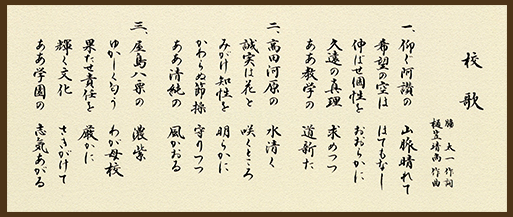 校歌
勝 太一 作詞
樋笠靖尚 作曲
一、仰ぐ阿讃の 山脈晴れて
希望の空は はてもなし
伸ばせ個性を おおらかに
久遠の真理 求めつつ
ああ教学の 道新た
二、高田河原の 水清く
誠実は花と 咲くところ
みがけ知性を 明らかに
かわらぬ節操 守りつつ
ああ清純の 風かおる
三、屋島八栗の 濃紫
ゆかしく匂う わが母校
果たせ責任を 厳かに
輝く文化 さきがけて
ああ学園の 志気あがる